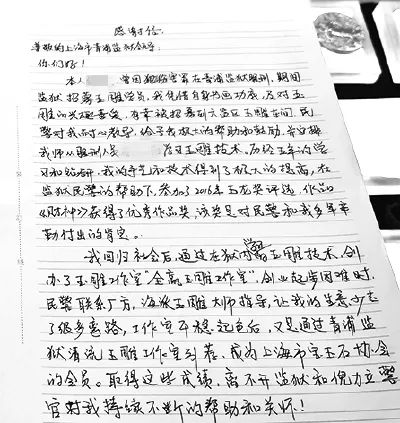 感谢信
尊敬的上海市青浦监狱领导:
你们好!
本人 曾因犯罪在青浦监狱服刑,期间
监狱招募玉雕学员,我凭借自身书画功底,及对玉
雕的兴趣喜爱,有幸被招募到六监区玉雕车间。民
警对我耐心教导,给予我极大的帮助和鼓励,并安排
我师从服刑人 学习玉雕技术。历经五年的学
习和钻研,我的手艺和技术得到了极大的提高,在
监狱民警的帮助下,参加了2016年玉龙奖评选,作品
《财神》获得了优秀作品奖,该奖是对民警和我多年辛
勤付出的肯定。
我回归社会后,通过在狱内学习玉雕技术,创
办了玉雕工作室“金赢玉雕工作室”,创业起步困难时,
民警联系厂方,海派玉雕大师指导,让我的生意少走
了很多弯路,工作室平稳起色后,又是通过青浦监
狱清流玉雕工作室引荐,成为上海市宝玉石协会
的会员。取得这些成绩,离不开监狱和倪力立警
官对我持续不断的帮助和关怀!